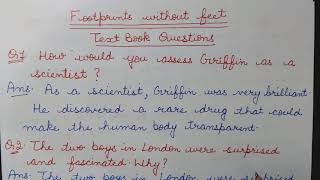 Footprints without feet
Text Book Questions
Q1 How would you assess Griffin as a
scientist?
Ans. As a scientist, Griffin was very brilliant.
He discovered a rare drug that could
make the human body transparent.
Q2. The two boys in London were surprised
and fascinated. Why?
Ans: The two boys in London were surprised